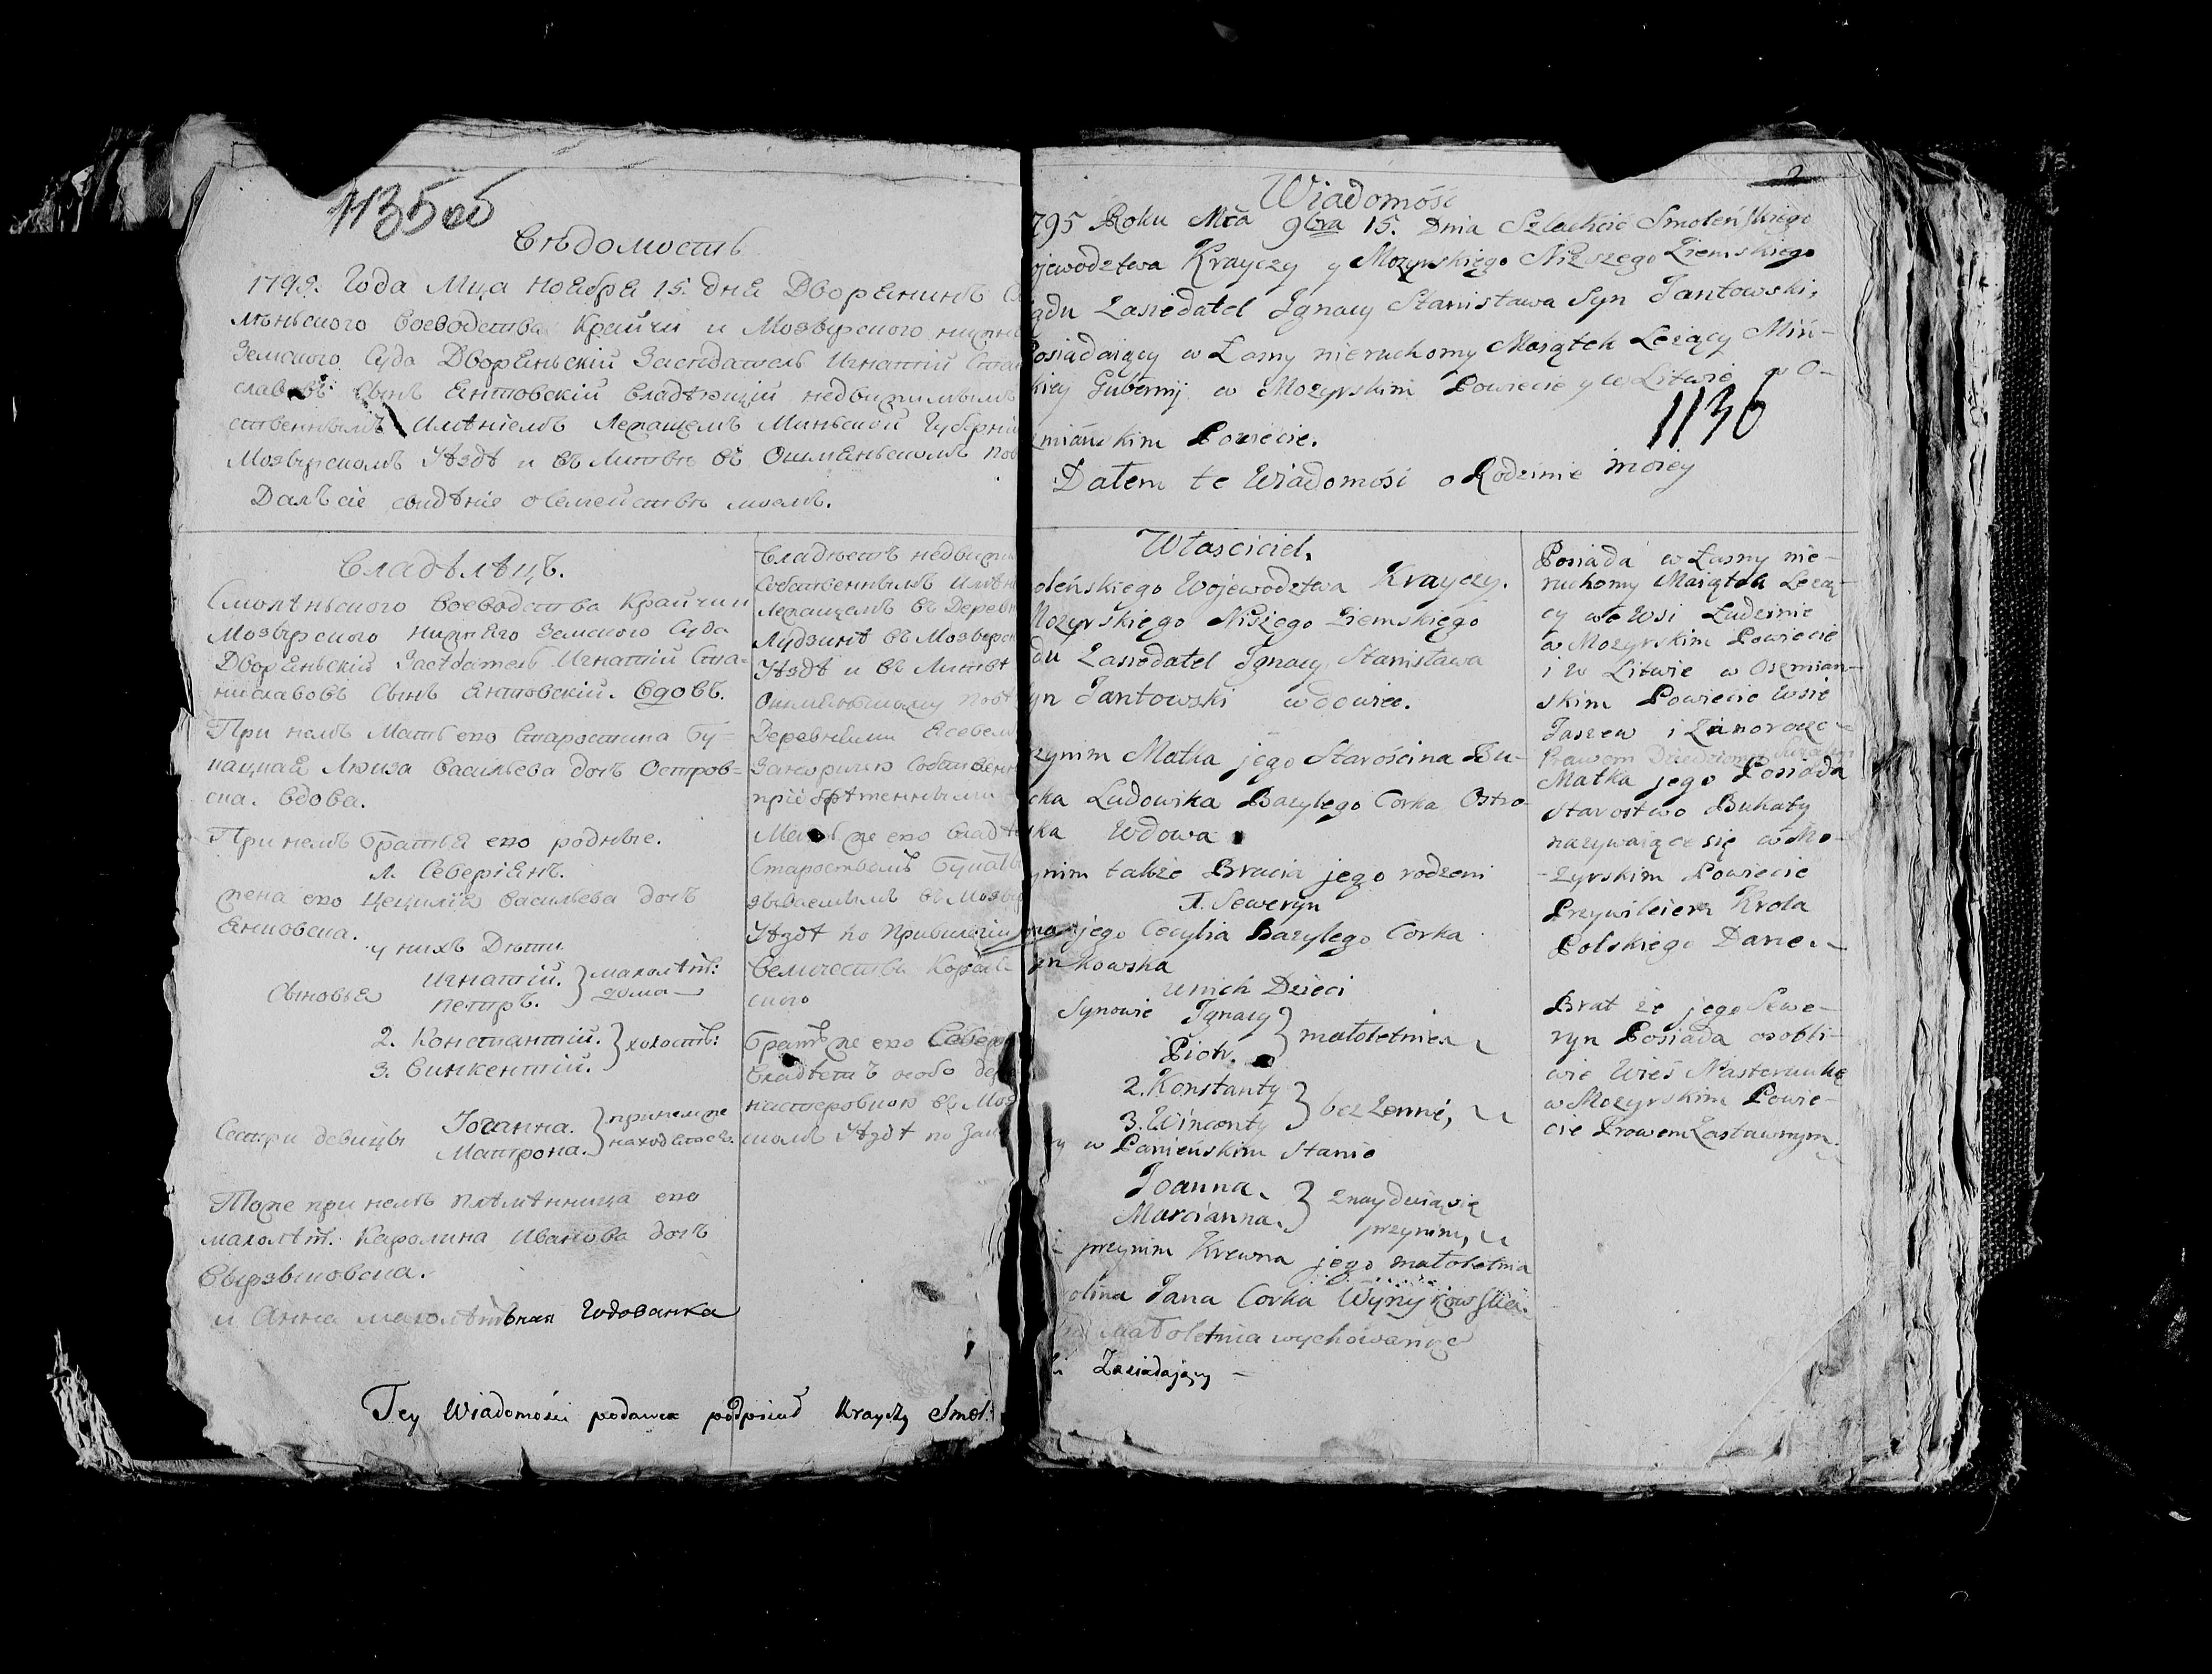 1135об
Вѣдомость
1795. Года Мца Ноября 15. дня Дворянинъ
лѣньского Воеводства Крайчи и Мозырского нижн
Земского Суда Дворяньскій Засѣдатель Игнатій Ста
славовъ Сынъ Янтовскій владѣющій недвижимымъ
ственнымъ Имѣніемъ Лежащемъ Миньской Губерніи
Мозырскомъ Уѣздѣ и въ Литвѣ въ Ошмяньскомъ пов
Далъ сіе свидѣніе о Семействѣ моемъ.
Владѣлѣцъ.
Смолѣньского Воеводства Крайчии
Мозырского нижняго Земского Суда
Дворяньскій Засѣдатель Игнатій Ста-
ниславовъ Сынъ Янтовскій. Вдовъ.
При немъ Мать его Старостина Бу-
Люиза Васильева дочь Остров=
ска. Вдова.
При немъ братья его родные.
1. Северіянъ.
жена его Цецилія Васильева дочь
Янковска.
у нихъ Дѣти
Сыновья Игнатій. Петръ. } малолѣт: дома
2. Константій. } холосты:
3. Винкентій.
Сестри девицы Іоганна. Матрона. } при немъ же находятся.
Тоже при немъ племѣнница его
малолѣт. Каролина Иванова дочь
и Анна малолѣтьная Годованка
Владѣетъ недвижи
Собственнымъ Имѣн
Лежащемъ въ Деревн
Лудзинѣ въ Мозырск
Уѣздѣ и въ Литвѣ
Деревнями
пріобрѣтенными
Мать же его Владѣ
Староствомъ
зываемымъ въ Мозы
Уѣздѣ по Привилегіи
Величества Короля
ского
Братъ же его Север
Владѣетъ особо дер
настеровкою въ Моз
скомъ Уѣздѣ по Зас
Tey Wiadomości podawca podpisał Krayczy Smol:
2
Wiadomość
795 Roku Mca 9bra 15. Dnia Szlachcic Smoleńskiego
ojewodztwa Krayczy y Mozyrskiego Niższego Ziemskiego
ądu Zasiedatel Ignacy Stanisława Syn Jantowski,
Posiadaiący w Łasny nieruchomy Maiątek Leżący Miń-
skiey Gubernij w Mozyrskim Powiecie y w Litwie w O-
1136
zmiańskim Powiecie.
Dałem te Wiadomości o Rodzinie moiey
Własciciel.
oleńskiego Wojewodztwa Krayczy.
Mozyrskiego Niższego Ziemskiego
du Zasiedatel Ignacy Stanisława
yn Jantowski wdowiec.
rzynim Matka jego Starościna Bu-
cka Ludowika Bazylego Corka Ostro-
ska Wdowa
ynim także Bracia jego rodzeni
1. Seweryn
na jego Cecylia Bazylego Corka
nkowska
unich Dzieci
Synowie Ignacy Piotr. } małoletnie
2. Konstanty } bezżenni,
3. Wincenty
ry w Panieńskim Stanie
Joanna. Marcianna. } znayduiąsię przynim,
przynim Krewna jego małoletnia
olina Jana Corka
małoletnia wychowanyc
i Zasiadający –
Posiada w Łasny nie-
ruchomy Maiątek Leżą-
cy we Wsi Ludzinie
w Mozyrskim Powiecie
i w Litwie w Oszmian-
skim Powiecie Wsie
Jaszew i
Prawem
Matka jego Posiada
Starostwo Bukaty
nazywaiące się w Mo-
-zyrskim Powiecie
Przywileiem Krola
Polskiego Dane.
Brat że jego Sewe-
ryn Posiada osobli-
wie Wieś Nasterunkę
w Mozyrskim Powie-
cie Prawem Zastawnym.